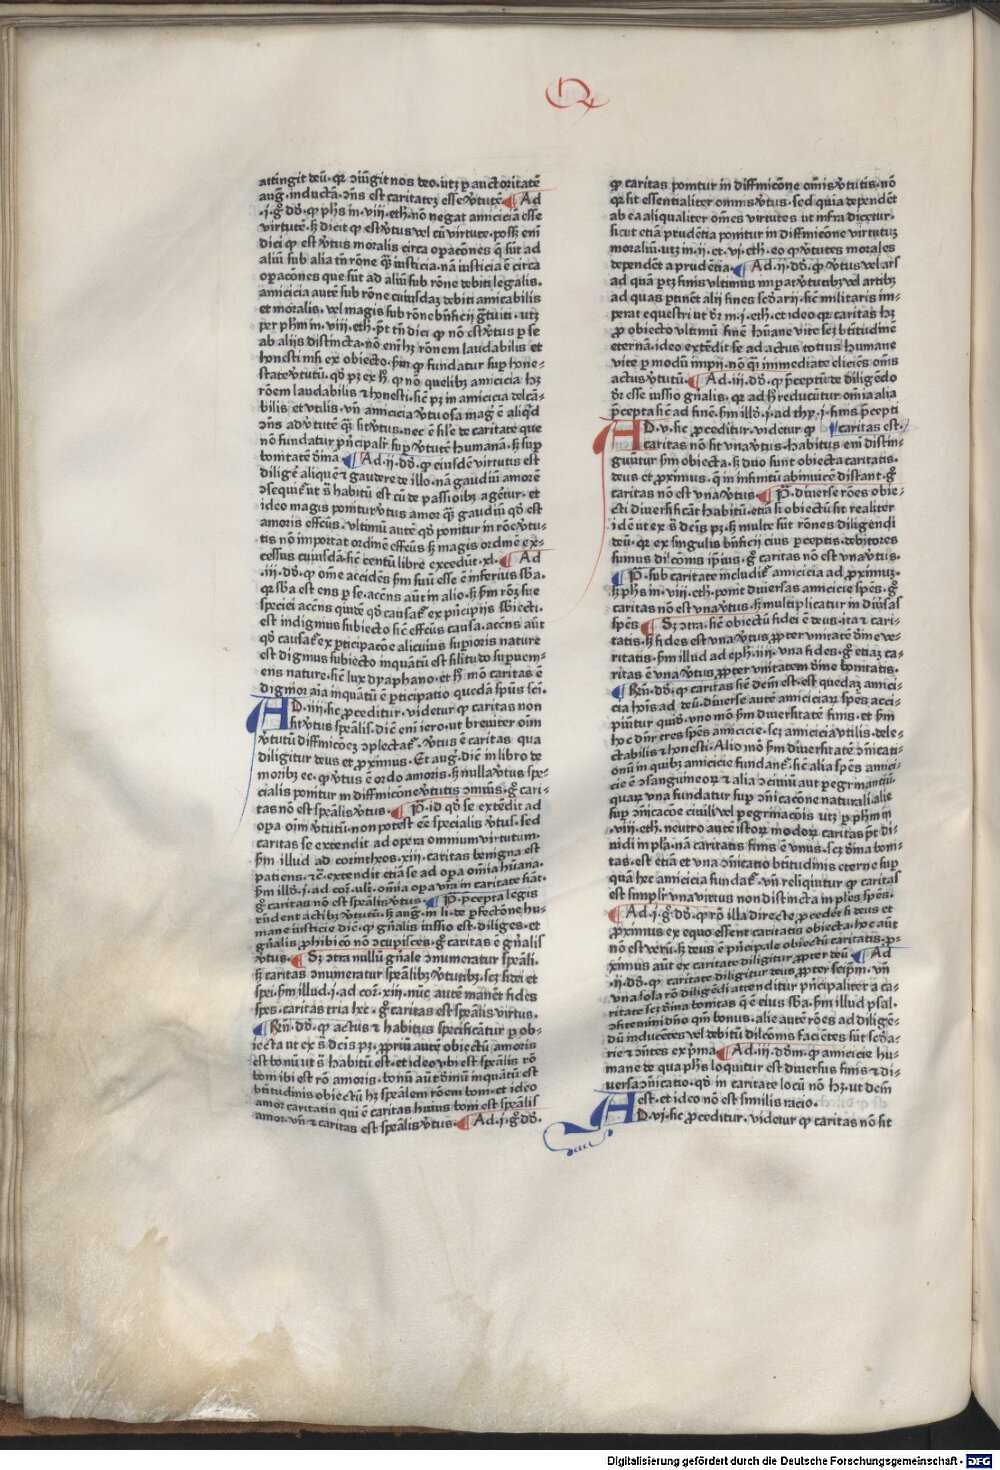 Q
attingit deū. qꝛ ↄiūgit nos deo. utꝫ ꝑ auctoritatē
aug̃. inductā. ↄn̄s est caritateꝫ esse v̓tutē. ¶ Ad
.i. gͦ dō. ꝙ ph̄s in. viii. eth̓. nō negat amiciciā esse
virtutē. sꝫ dicit ꝙ est v̓tus vel cū virtute. posꝫ enī
dici ꝙ est v̓tus moralis circa oꝑacōnes q̄ sūt ad
aliū sub alia tn̄ rōne qͣꝫ iusticia. nā iusticia ē circa
oꝑacōnes que sūt ad aliū sub rōne debiti legalis.
amicicia autē sub rōne cuiusdaꝫ debiti amicabilis
et moralis. vel magis sub rōne bn̄ficii gͣtuiti. utꝫ
per phm in. viii. eth̓. pt̄ tn̄ dici ꝙ nō est v̓tus ꝑ se
ab alijs distincta. nō enī hꝫ rōnem laudabilis et
honesti nisi ex obiecto. ẜm ꝙ fundatur suꝑ hone-
state v̓tutū. qd̓ pꝫ ex hͦ ꝙ nō quelibꝫ amicicia hꝫ
rōem laudabilis ⁊ honesti. sic̄ pꝫ in amicicia delcā-
bilis et utilis. vn̄ amicicia v̓tuosa mag̓ ē aliqͥd
ↄn̄s ad v̓tutē qͣꝫ sit v̓tus. nec ē sil̓e de caritate que
nō fundatur pͥncipalr̄ suꝑ v̓tutē humanā. sꝫ suꝑ
bonitatē dīna. ¶ Ad. ij. dō. ꝙ eiusdē virtutis est
diligē̓ aliquē ⁊ gaudere de illo. nā gaudiū amorē
ↄsequit᷑ ut sͣ habitū est cū de passioībꝫ agēt᷑ur. et
ideo magis ponitur v̓tus amor qͣꝫ gaudiū qd̓ est
amoris effcūs. vltimū autē qd̓ ponitur in rōe v̓tu-
tis nō importat ordinē effcūs sꝫ magis ordinē ex-
cessus cuiusdā. sic̄ centū libre excedūt. xl. ¶ Ad
.iii. dō. ꝙ om̄e accidēs ẜm suū esse ē inferius sb̓a.
qꝛ sb̓a est ens ꝑ se. accn̄s aūt in alio. sꝫ ẜm rōꝫ sue
speciei accn̄s quidē qd̓ causat᷑ ex pͥncipijs sb̓iecti.
est indignius subiecto sic̄ effcūs causa. accn̄s aūt
qd̓ causat᷑ ex ꝑticipacōe alicuius suꝑioris nature
est dignius subiecto inquātū est silitudo suꝑioris
ens nature. sic̄ lux dyaphano. et hͦ mō caritas ē
dignior aīa inquātū ē ꝑticipatio quedā spūs sc̄i.
AD. iiii. sic ꝓceditur. videtur ꝙ caritas non
sit v̓tus spēalis. dic̄ enī iero. ut breuiter om̄
v̓tutū diffinicōeꝫ ↄplectar̄. v̓tus ē caritas qua
diligitur deus et ꝓximus. Et aug̃. dic̄ in libro de
moribꝫ ec̄. ꝙ v̓tus ē ordo amoris. sꝫ nulla v̓tus spe-
cialis ponitur in diffinicōne v̓tutis ↄmūis. gͦ cari-
tas nō est spēalis v̓tus. ¶ P̄. id qd̓ se extēdit ad
oꝑa oīm v̓tutū. non potest eē specialis v̓tus. sed
caritas se extendit ad opera omnium virtutum.
ẜm illud ad corintheos. xiii. caritas benigna est
patiens. ⁊c̄. extendit etiā se ad oꝑa om̄ia hūana.
ẜm illd̓. i. ad cor̄. ult̄. om̄ia oꝑa vr̄a in caritate fiāt.
gͦ caritas nō est spēalis v̓tus. ¶ P̄. pcepta legis
rn̄dent actibꝫ v̓tutū. sꝫ aug̃. in li. de ꝑfectōne hu-
mane iusticie dic̄. ꝙ gn̄alis iussio est. diliges. et
gn̄alis ꝓhibicō nō ↄcupisces. gͦ caritas ē gn̄alis
v̓tus. ¶ Sꝫ ↄtra nullū gn̄ale ↄnumeratur spēali.
sꝫ caritas ↄnumeratur spēalibꝫ v̓tutibꝫ. scꝫ fidei et
spei. ẜm illud. i. ad cor̄. xiii. nūc autē manēt fides
spes. caritas tria hec. gͦ caritas est spēalis virtus.
¶ Rn̄. dō. ꝙ actus ⁊ habitus specificātur ꝑ ob-
iecta ut ex sͣ dc̄is pꝫ. ꝓprīū autē obiectū amoris
est bonū ut sͣ habitū est. et ideo vbi est spēalis rō
boni ibi est rō amoris. bonū aūt dīnū inquātū est
btitudinis obiectū hꝫ spēalem rōem boni. et ideo
amor caritatis qui ē caritas huius boni est spēalis
amor. vn̄ ⁊ caritas est spēalis v̓tus. ¶ Ad. i. gͦ dō.
ꝙ caritas ponitur in diffinicōne om̄is v̓tutis. nō
qꝛ sit essentialiter omnis v̓tus. sed quia dependēt
ab ea aliqualiter om̄es virtutes ut infra dicetur.
sicut etiā prudētia ponitur in diffinicōne virtutuꝫ
moraliū. utꝫ in. ii. et. vi. eth̓. eo ꝙ v̓tutes morales
dependēt a prudētia. ¶ Ad. ii. dō. ꝙ v̓tus vel ars
ad quā ꝑtꝫ finis vltimus imꝑat v̓tutibꝫ vel artibꝫ
ad quas ꝑtinēt alij fines scd̓arij. sic̄ militaris im-
perat equestri ut dr̄ in. i. eth̓. et ideo qꝛ caritas hꝫ
ꝓ obiecto vltimū finē hūane vite scꝫ btitudinē
eternā. ideo extēdit se ad actus totius humane
vite ꝑ modū imꝑii. nō qͣi immediate eliciēs om̄s
actus v̓tutū. ¶ Ad. iii. dō. ꝙ p̄ceptū de diligēdo
dr̄ esse iussio gn̄alis. qꝛ ad hͦ reducūtur om̄ia alia
p̄cepta sic̄ ad finē. ẜm illd̓. i. ad thyͦ. i. finis p̄cepti
AD. v. sic ꝓceditur. videtur ꝙ ¶ caritas est.
caritas nō sit vna v̓tus. habitus enī distin-
guūtur ẜm obiecta. sꝫ duo sunt obiecta caritatis.
deus et ꝓximus. q̄ in infinitū abinuicē distant. gͦ
caritas nō est vna v̓tus. ¶ P̄. diuerse rōes obie-
cti diuersificāt habitū. etiā si obiectū sit realiter
idē ut ex sͣ dc̄is pꝫ. sꝫ multe sūt rōnes diligendi
deū. qꝛ ex singulis bn̄ficii eius ꝑceptis. debitores
sumus dilcōnis ip̄ius. gͦ caritas nō est vna v̓tus.
¶ P̄. sub caritate includit᷑ amicicia ad ꝓximuꝫ.
sꝫ ph̄s in. viii. eth̓. ponit diuersas amicicie spēs. gͦ
caritas nō est vna v̓tus. sꝫ multiplicatur in diu̓sas
spēs. ¶ Sꝫ ↄtra. sic̄ obiectū fidei ē deus. ita ⁊ cari-
tatis. sꝫ fides est vna v̓tus ꝓpter vnitatē dīne ve-
ritatis. ẜm illud ad eph̄. iiii. vna fides. gͦ etiaꝫ ca-
ritas ē vna v̓tus ꝓpter vnitatem dīne bonitatis.
¶ Rn̄. dō. ꝙ caritas sic̄ dc̄m est. est quedaꝫ amici-
cia hoīs ad deū. diuerse autē amiciciaꝝ spēs acci-
piūtur quiđ. vno mō ẜm diuersitatē finis. et ẜm
hoc dn̄r tres spēs amicicie. scꝫ amicicia vtilis. dele-
ctabilis ⁊ honesti. Alio mō ẜm diuersitatē ↄīcati-
onū in quibꝫ amicicie fundant᷑. sic̄ alia spēs amici-
cie ē ↄsanguineoꝝ ⁊ alia ↄciuiū aut ꝑegrinantiū.
quaꝝ vna fundatur suꝑ ↄīcacōne naturali. alie
suꝑ ↄīcacōe ciuili vel ꝑegrinacōis utꝫ ꝑ phm in
.viii. eth̓. neutro autē istoꝝ modoꝝ caritas pt̄ di-
uidi in pla. nā caritatis finis ē vnus. scꝫ dīna boni-
tas. est etiā et vna ↄīcatio btitudinis eterne suꝑ
quā hec amicicia fundat᷑. vn̄ reliqͥuitur ꝙ caritas
est simplr̄ vna virtus non distincta in ples spēs.
¶ Ad. i. gͦ dō. ꝙ rō illa directe ꝓcedēt si deus et
ꝓximus ex equo essent caritatis obiecta. hoc aūt
nō est verū. sꝫ deus ē pͥncipale obiectū caritatis. ꝓ-
ximus aūt ex caritate diligitur ꝓpter deū. ¶ Ad
.ii. dō. ꝙ caritate diligitur deus ꝓpter seip̄m. vn̄
vna sola rō diligēdi attenditur pͥncipaliter a ca-
ritate scꝫ dīna bonitas q̄ ē eius sb̓a. ẜm illud psal.
ↄfitemini dn̄o qm̄ bonus. alie autē rōes ad diligē-
dū inducētes vel debitū dilcōnis faciētes sūt scd̓a-
rie ⁊ ↄn̄tes ex pͥma. ¶ Ad. iii. dōm. ꝙ amicicie hu-
mane de qua ph̄s loquitur est diuersus finis ⁊ di-
uersa ↄīcatio. qd̓ in caritate locū nō hꝫ. ut dc̄m
est. et ideo nō est similis racio.
AD. vi. sic ꝓceditur. videtur ꝙ caritas nō sit
Digitalisierung gefördert durch die Deutsche Forschungsgemeinschaft - DFG